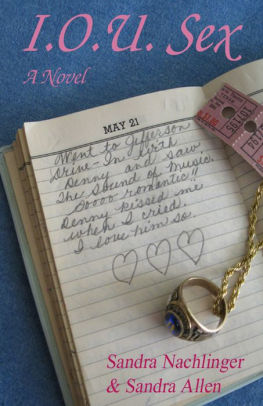 I.O.U. Sex
A Novel
MAY 21
Went to Jefferson
Drive-In with
Denny and saw
The Sound of Music.
Soooo romantic!!
Denny kissed me
when I cried.
I love him so.
Sandra Nachlinger
& Sandra Allen